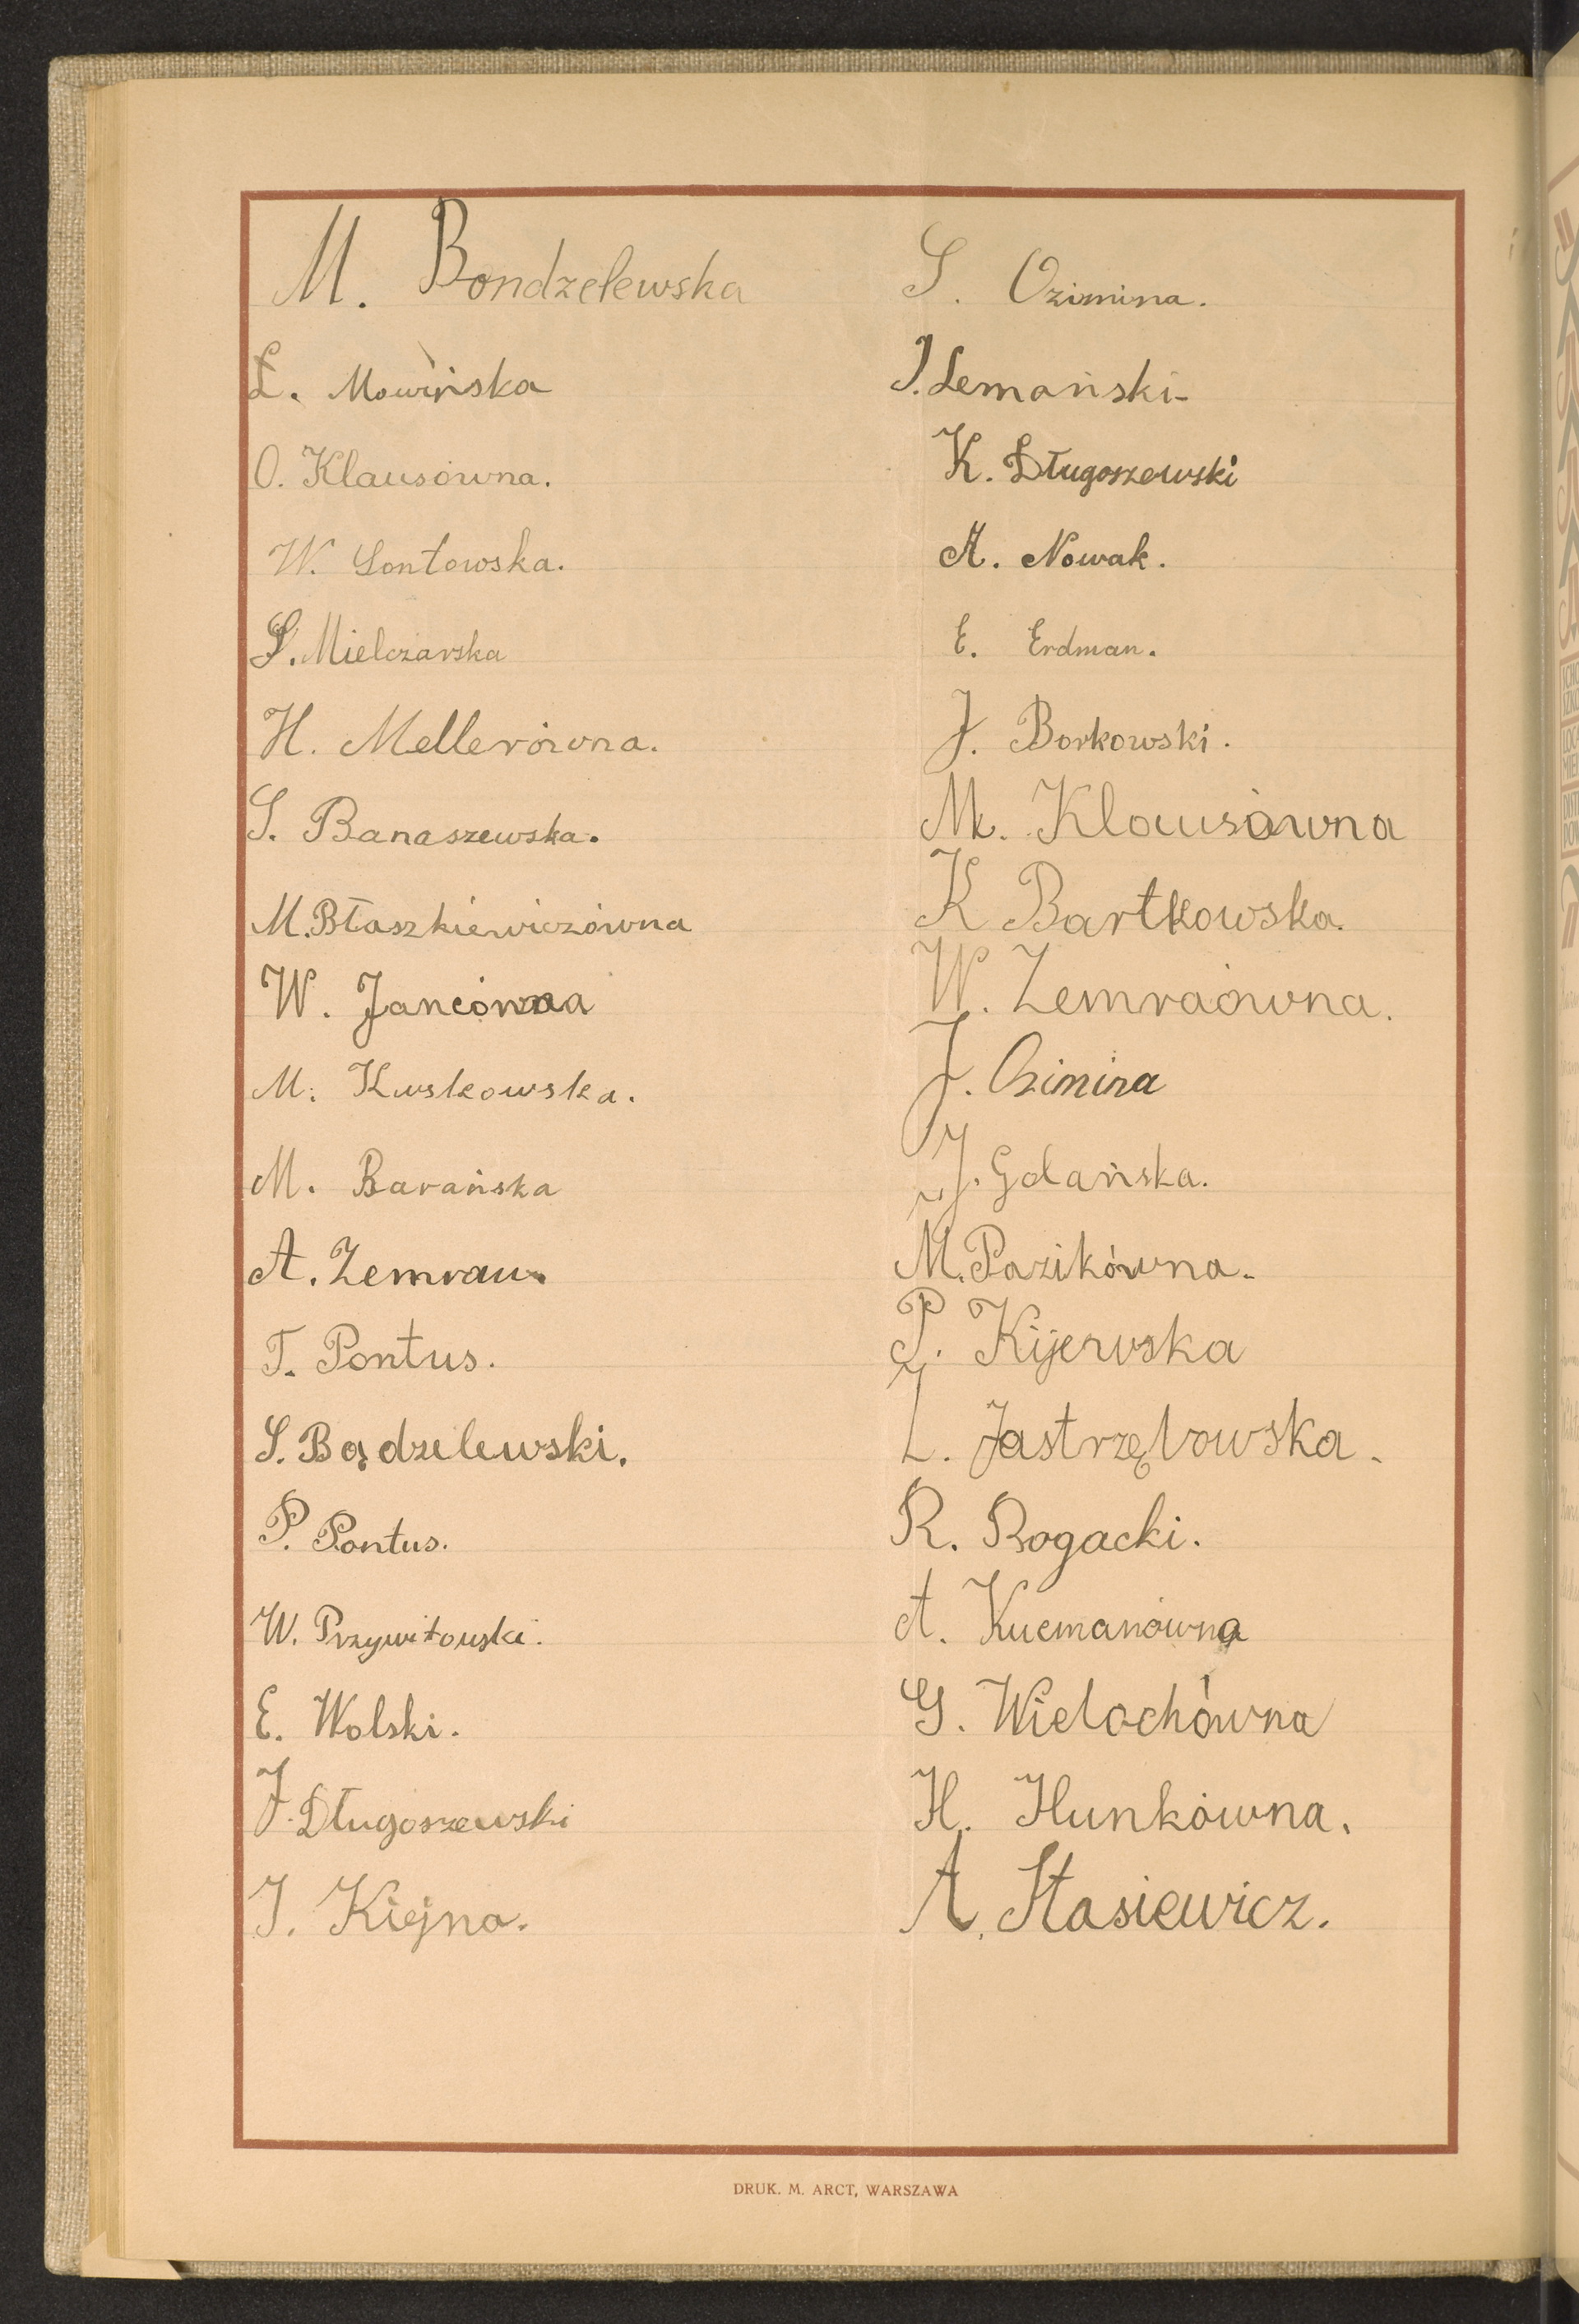 M. Bondzelewska
Ł. Mowińska
O. Klausówna.
W. Lontowska.
S. Mielczarska
H. Mellerówna.
S. Banaszewska.
M. Błaszkiewiczówna
W. Jancówna
M. Kuskowska.
M. Barańska
A. Zemrau.
T. Pontus.
S. Bądzelewski.
P. Pontus.
W. Przywitowski.
E. Wolski.
J. Długoszewski
J. Kiejna.
S. Ozimina.
J. Lemański-
K. Długoszewski
A. Nowak.
E. Erdman.
J. Borkowski.
M. Klausówna
K Bartkowska.
W. Zemraówna.
J. Ozimina
J. Gdańska.
M. Pazikówna.
P. Kijewska
Z. Jastrzębowska.
R. Rogacki.
A. Kucmanówna
G. Wielochówna
H. Hunkówna.
A. Stasiewicz.
DRUK. M. ARCT, WARSZAWA